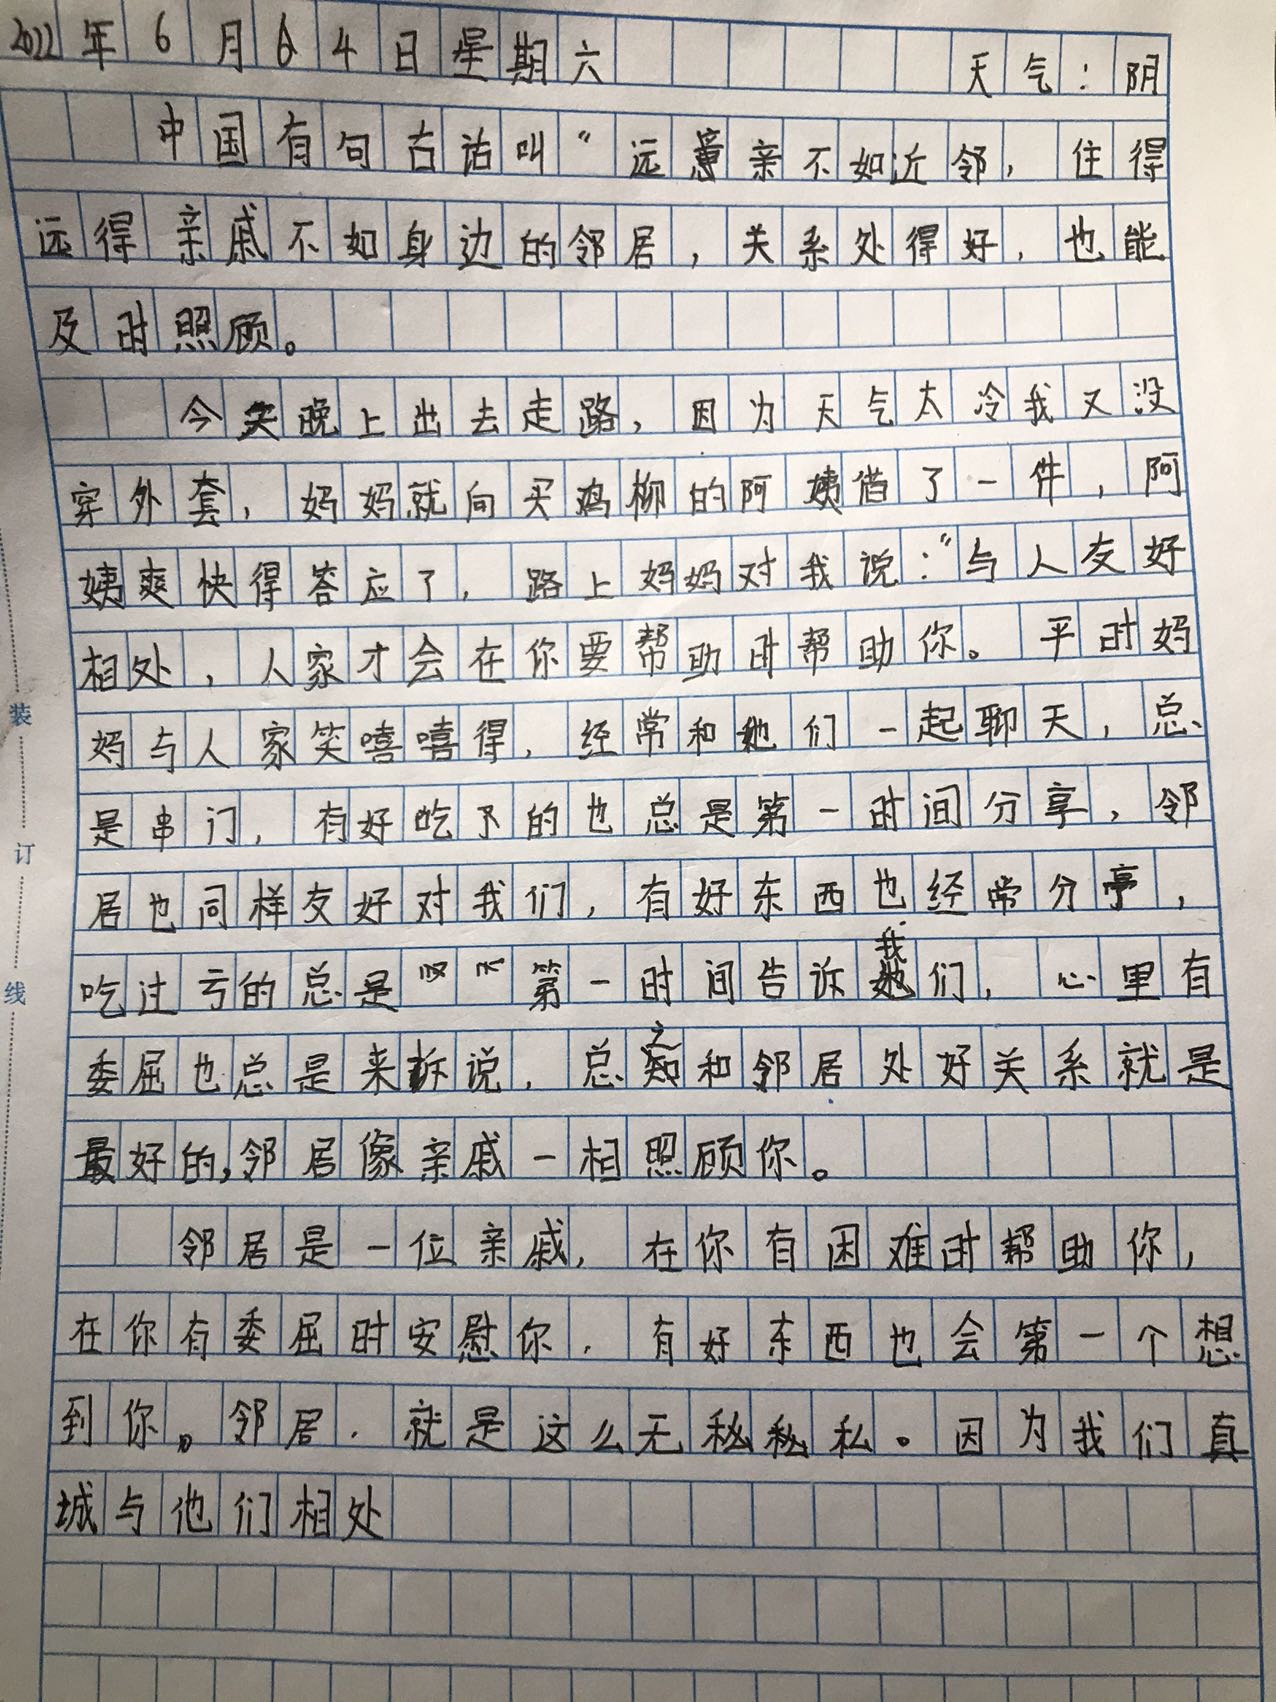 2022年6月4日星期六 天气：阴
中国有句古话叫“远亲不如近邻，住得
远得亲戚不如身边的邻居，关系处得好，也能
及时照顾。
今天晚上出去走路，因为天气太冷我又没
穿外套，妈妈就向买鸡柳的阿姨借了一件，阿
姨爽快得答应了，路上妈妈对我说：“与人友好
相处，人家才会在你要帮助时帮助你。平时妈
妈与人家笑嘻嘻得，经常和她们一起聊天，总
是串门，有好吃的也总是第一时间分享，邻
居也同样友好对我们，有好东西也经常分享，
吃过亏的总是第一时间告诉我们，心里有
委屈也总是来诉说，总之和邻居处好关系就是
最好的，邻居像亲戚一相照顾你。
邻居是一位亲戚，在你有困难时帮助你，
在你有委屈时安慰你，有好东西也会第一个想
到你。邻居，就是这么无私。因为我们真
城与他们相处
装
订
线